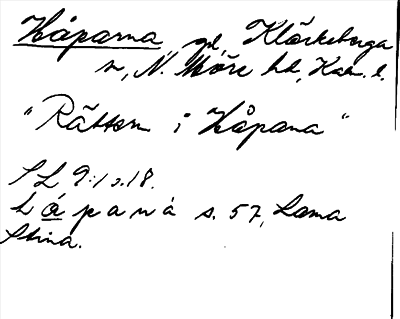 Håparna gd, Klörkeberga
sn, N. Möre hd, Kalm. l.
"Råtten i Håpana"
SL 9:1 s.18.
håpana s. 57, Lama
Stina.